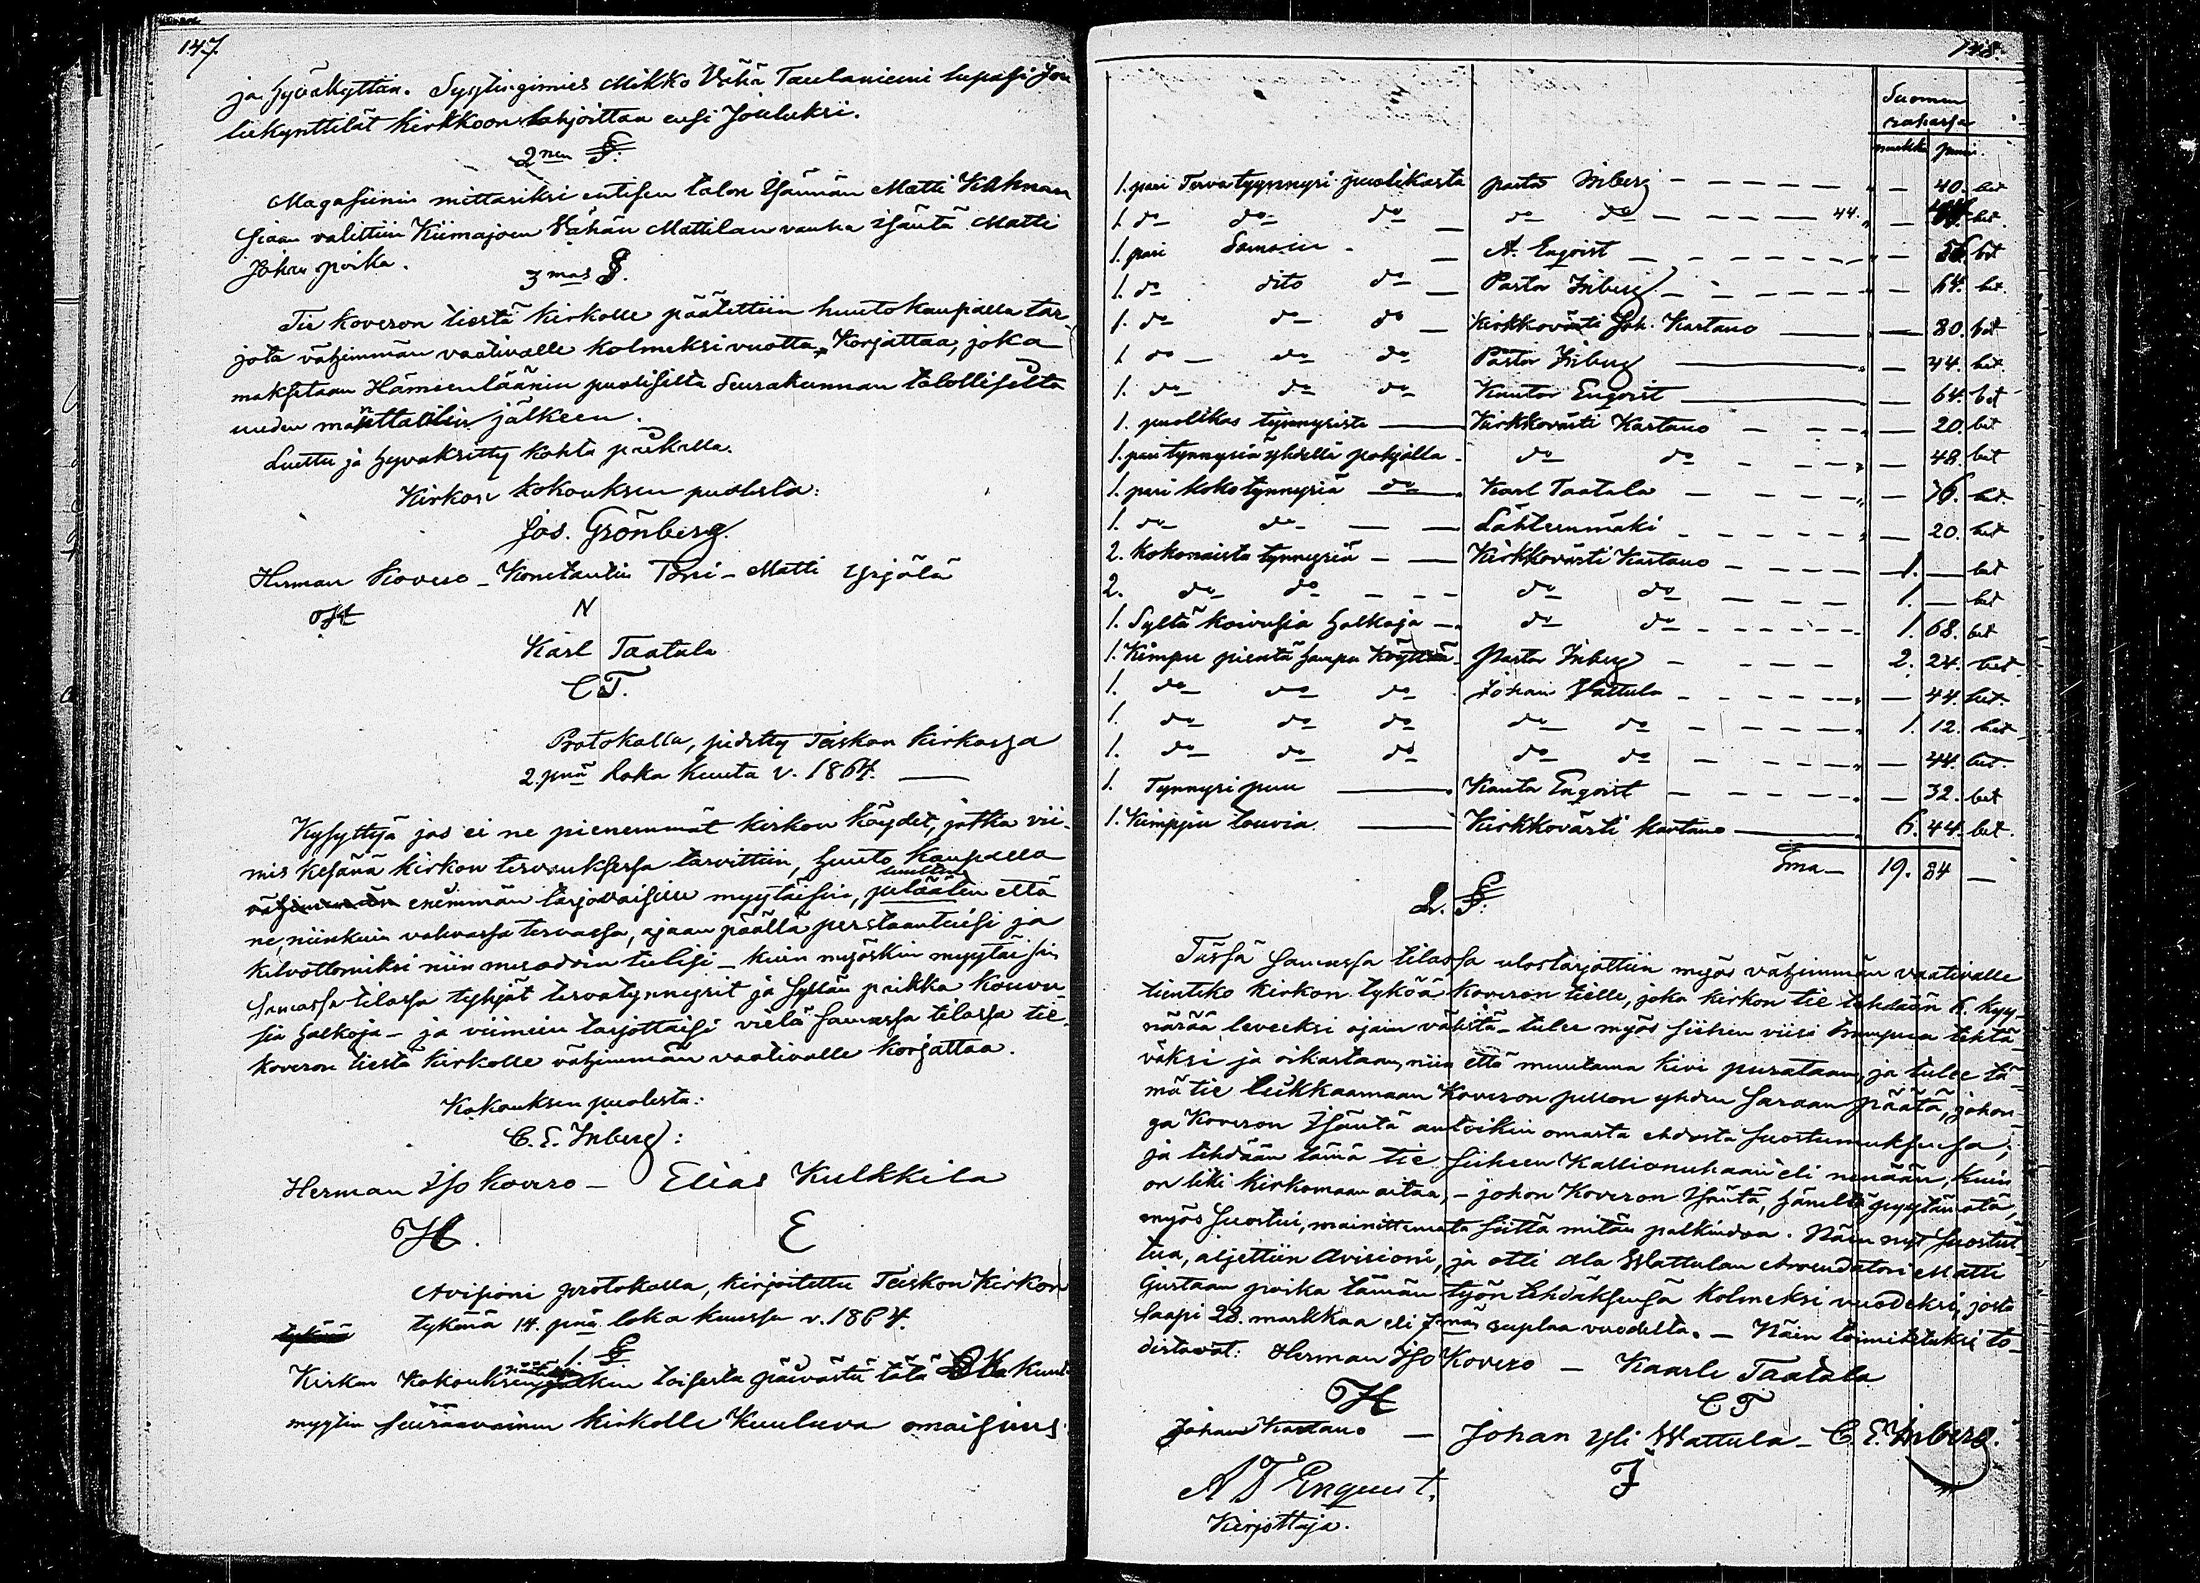 147.
ja hyväkyttiin. Sysslingimies Mikko Vähä Taulaniemi lupasi Jou
lukynttilät Kirkkoon lahjoittaa ensi Jouluksi.
2nen §:
Magasiinin mittariksi entisen talon Isännän Matti Kahnan
siaan valittiin Kiimajoen Vähän Mattilan vanha isäntä Matti
Johan poika.
3mas §.
Tie Koveron tiestä Kirkolle päätettiin huutokaupalla tar-
jota vähimmän vaativalle kolmeksi vuotta, Korjattaa, joka
maksetaan Hämeenläänin puolisilta Seurakunnan talollisilta
uuden manttalin jälkeen.
Luettu ja hyväksitty kohta paikalla.
Kirkon kokouksen puolesta:
Jos. Grönberg.
Herman Kovero – Konstantin Tori – Matti Yrjölä
H N
Karl Taatala
C T.
Protokolla, pidetty Teiskon Kirkossa
2. pnä loka kuuta v. 1864.
Kysyttyä jos ei ne pienemmät kirkon köydet, jotka vii-
mis kesänä kirkon tervauksessa tarvittiin, huuto kaupalla
vähimmän enemmän tarjovaisille myytäisiin, luultiin että
ne, niinkuin vahvassa tervassa, ajaan päällä perstaantuisi ja
kelvottomiksi niin muodoin tulisi – kuin myöskin myytäisiin
samassa tilassa tyhjät tervatynnyrit ja syltän paikka koivu
sia halkoja – ja viimein tarjottaisi vielä samassa tilassa tie
Koveron tiestä Kirkolle vähimmän vaativalle korjattaa.
Kokouksen puolesta:
C. E. Inberg:
Herman Iso Kovero – Elias Kulkkila
H. E
Avisioni protokolla, kirjoitettu Teiskon Kirkon
tykönä tykönä 14. pnä loka kuussa v. 1864.
1 §
Kirkon Kokouksen päätöksen toisesta päivästä tätä loka kuuta
myytiin seuraavainen Kirkolle Kuuluva omaisuus
148.
Suomen
rahassa
markka penni.
1. pari Tervatyynnyri puolikasta pastor Inberg – – – – – – – 40. bet
1 do do do do do – – – – – 44. – bet.
1. pari Samoin – A. Enqvist – – – – – – – – 56 bet
1. do dito do – Pastor Inberg – – – – – – – – 64. bet.
1. do do do – Kirkkovärti Joh. Kartano – – 80. bet
1 do – do do Pastor Inberg – – 44. bet.
1. do do do Kantor Enqvist – – 64. bet
1. puolikas tynnyristä – Kirkkovärti Kartano – – – – 20. bet
1. pari tynnyriä yhdellä pohjalla – do do – – – – 48. bet
1. pari koko tynnyriä do – Karl Taatala – – – – – 76. bet.
1. do do – – Lähteenmäki – – – – – – 20. bet
2. Kokonaista tynnyriä – – Kirkkovärti Kartano – – – – 1. – bet
2. do do – – – do do – – – – 1. – bet
1. Syltä koivusia halkoja – do do – – – – – 1. 68. bet
1. Kimpu pientä hampu köyttää – Pastor Inberg – – – – – 2. 24. bet.
1. do do do Johan Vattula – – – – – – 44. bet.
1. do do do do do – – – – – 1. 12. bet
1. do do do do do – – – – – – 44. bet.
1. Tynnyri puu – Kanto Enqvist – – – – – – 32. bet
1. Kimppu touvia. – Kirkkovärti kartano – 6. 44. bet.
Sma – 19. 84 –
2. §:
Tässä samassa tilassa ulostarjottiin myös vähimmän vaativalle
tienteko kirkon tyköä Koveron tielle, joka kirkon tie tehdään 6. kyy-
närää leveeksi ojain välistä – tulee myös siihen viisi trumpua tehtä-
väksi ja oikastaan, niin että muutama kivi puretaan, ja tulee tä-
mä tie leikkaamaan Koveron pellon yhden saraan päätä, johon-
ga Koveron Isäntä antoikin omasta ehdosta suostumuksensa;
ja tehdään tämä tie siiheen Kallionuhaan eli nenään, kuin
on liki kirkomaan aitaa, – johon Koveron Isäntä, häneltä pyytämätä,
myös suostui, mainittemata siittä mitän palkindoa. Näin nyt suostut-
tua, aljettiin Avisioni, ja otti Ala Wattulan Arvendatori Matti
Gustaan poika tämän työn tehdäksensä kolmeksi vuodeksi, josta
saapi 28. markkaa eli 7. män ruplaa vuodelta. – Näin toimitetuksi to-
distavat: Herman Iso Kovero – Kaarle Taatala
H C T
Johan Kartano – Johan Yli Wattula – C. E. Inberg.
A T Enquist, J
Kirjottaja.